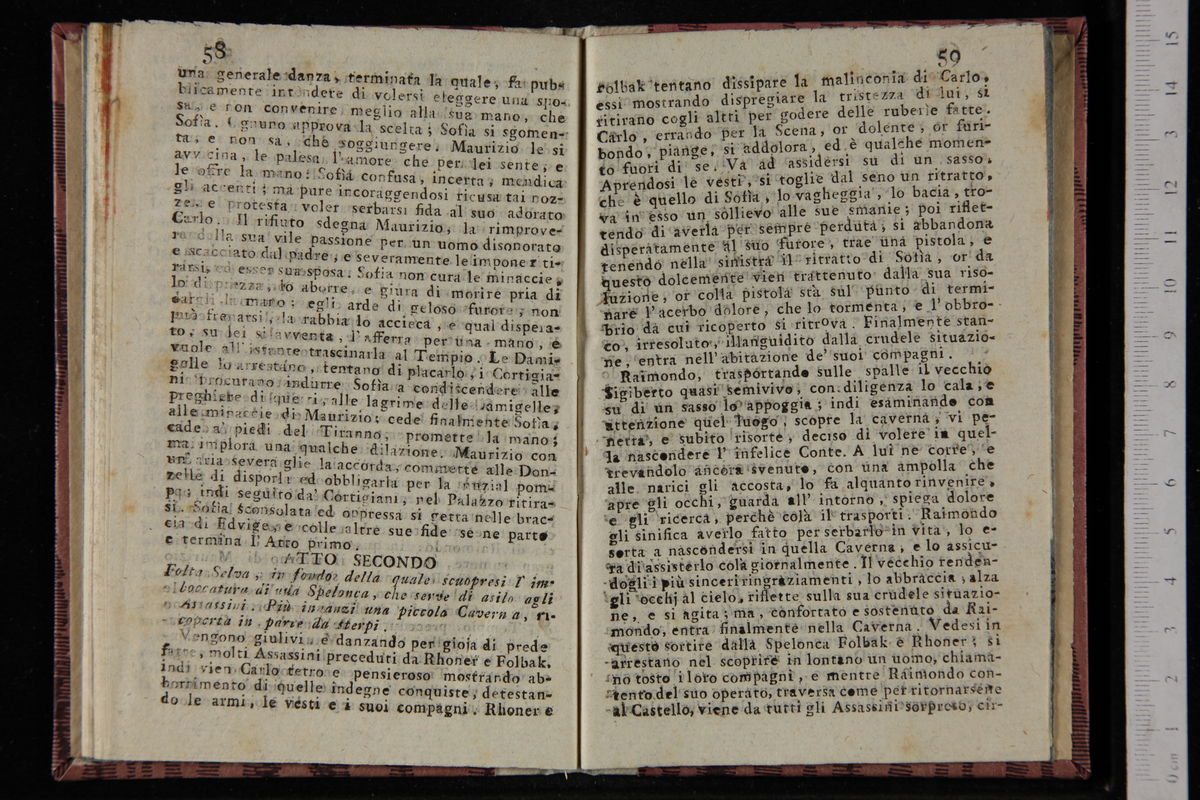 58
una generale danza, terminata la quale, fa pub-
blicamente intendere di volersi eleggere una spo-
sa, e non convenire meglio alla sua mano, che
Sofia. Ognuno approva la scelta; Sofia si sgomen-
ta, e non sa, che soggiungere. Maurizio le si
avvicina, le palesa l'amore che per lei sente, e
le offre la mano: Sofia confusa, incerta, mendica
gli accenti; ma pure incoraggendosi ricusa tai noz-
ze, e protesta voler serbarsi fida al suo adorato
Carlo. Il rifiuto sdegna Maurizio, la rimprove-
ra della sua vile passione per un uomo disonorato
e scacciato dal padre, e severamente le impone riti-
rarsi, ed esser sua sposa. Sofia non cura le minaccie,
lo disprezza, lo aborre, e giura di morire pria di
dargli la mano; egli arde di geloso furore, non
può frenarsi, la rabbia lo accieca, e qual dispera-
to, su lei si avventa, l'afferra per una mano, e
vuole all'istante trascinarla al Tempio. Le Dami-
gelle lo arrestano, tentano di placarlo, i Cortigia-
ni procurano indurre Sofia a condiscendere alle
preghiere di questi, alle lagrime delle Damigelle,
alle minaccie di Maurizio; cede finalmente Sofia,
cade a' piedi del Tiranno, promette la mano;
ma implora una qualche dilazione. Maurizio con
un' aria severa glie la accorda, commette alle Don-
zelle di disporla ed obbligarla per la nuzial pom-
pa; indi seguito da' Cortigiani, nel Palazzo ritira-
si. Sofia sconsolata ed oppressa si getta nelle brac-
cia di Edvige, e colle altre sue fide se ne parte
e termina l'Atto primo.
ATTO SECONDO
Folta Selva, in fondo della quale scuopresi l' im-
boccatura di una Spelonca, che serve di asilo agli
Assassini. Più innanzi una piccola Caverna, ri-
coperta in parte da sterpi.
Vengono giulivi, e danzando per gioia di prede
fatte, molti Assassini preceduti da Rhoner e Folbak,
indi vien Carlo tetro e pensieroso mostrando ab-
borrimento di quelle indegne conquiste, detestan-
do le armi, le vesti e i suoi compagni. Rhoner e
59
Folbak tentano dissipare la malinconia di Carlo,
essi mostrando dispregiare la tristezza di lui, si
ritirano cogli altti per godere delle ruberie fatte.
Carlo, errando per la Scena, or dolente, or furi-
bondo, piange, si addolora, ed è qualche momen-
to fuori di se. Va ad assidersi su di un sasso.
Aprendosi le vesti, si toglie dal seno un ritratto,
che è quello di Sofia, lo vagheggia, lo bacia, tro-
va in esso un sollievo alle sue smanie; poi riflet-
tendo di averla per sempre perduta, si abbandona
disperatamente al suo furore, trae una pistola, e
tenendo nella sinistra il ritratto di Sofia, or da
questo dolcemente vien trattenuto dalla sua riso-
luzione, or colla pistola stà sul punto di termi-
nare l'acerbo dolore, che lo tormenta, e l'obbro-
brio da cui ricoperto si ritrova. Finalmente stan-
co, irresoluto, illanguidito dalla crudele situazio-
ne, entra nell'abitazione de' suoi compagni.
Raimondo, trasportando sulle spalle il vecchio
Sigiberto quasi semivivo, con diligenza lo cala, e
su di un sasso lo appoggia; indi esaminando con
attenzione quel luogo, scopre la caverna, vi pe-
netra, e subito risorte, deciso di volere in quel-
la nascondere l' infelice Conte. A lui ne corre, e
trevandolo ancora svenuto, con una ampolla che
alle narici gli accosta, lo fa alquanto rinvenire,
apre gli occhi, guarda all' intorno, spiega dolore
e gli ricerca, perchè colà il trasporti. Raimondo
gli sinifica averlo fatto per serbarlo in vita, lo e-
sorta a nascondersi in quella Caverna, e lo assicu-
ra di assisterlo colà giornalmente. Il vecchio renden-
dogli i più sinceri ringraziamenti, lo abbraccia, alza
gli occhj al cielo, riflette sulla sua crudele situazio-
ne, e si agita; ma, confortato e sostenuto da Rai-
mondo, entra finalmente nella Caverna. Vedesi in
questo sortire dalla Spelonca Folbak e Rhoner; si
arrestano nel scoprire in lontano un uomo, chiama-
no tosto i loro compagni, e mentre Raimondo con-
tento del suo operato, traversa come per ritornarsene
al Castello, viene da tutti gli Assassini sorpreso, cir-